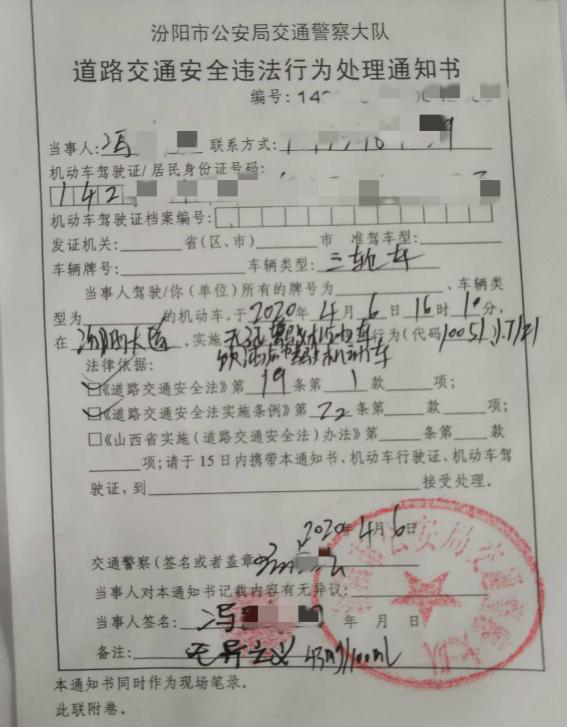 汾阳市公安局交通警察大队
道路交通安全违法行为处理通知书
编号:14
当事人:冯 联系方式:
机动车驾驶证/居民身份证号码:
142
机动车驾驶证档案编号:
发证机关: 省(区、市) 市 准驾车型:
车辆牌号: 车辆类型:三轮车
当事人驾驶/你(单位)所有的牌号为 、车辆类
型为 的机动车,于2020年4月6日16时10分,
在汾阳大 ,实施无证驾驶机动车行为(代码10051
饮酒后驾驶机动车
法律依据:
《道路交通安全法》第19条第1款 项;
《道路交通安全法实施条例》第22条第 款 项;
□《山西省实施(道路交通安全法)办法》第 条第 款
项;请于15日内携带本通知书、机动车行驶证、机动车驾
驶证,到 接受处理。
2020年4月6日
交通警察(签名或者盖章)
当事人对本通知书记载内容有无异议:
当事人签名:冯 年 月 日
备注:无异议 43mg/100mL
本通知书同时作为现场笔录。
此联附卷。